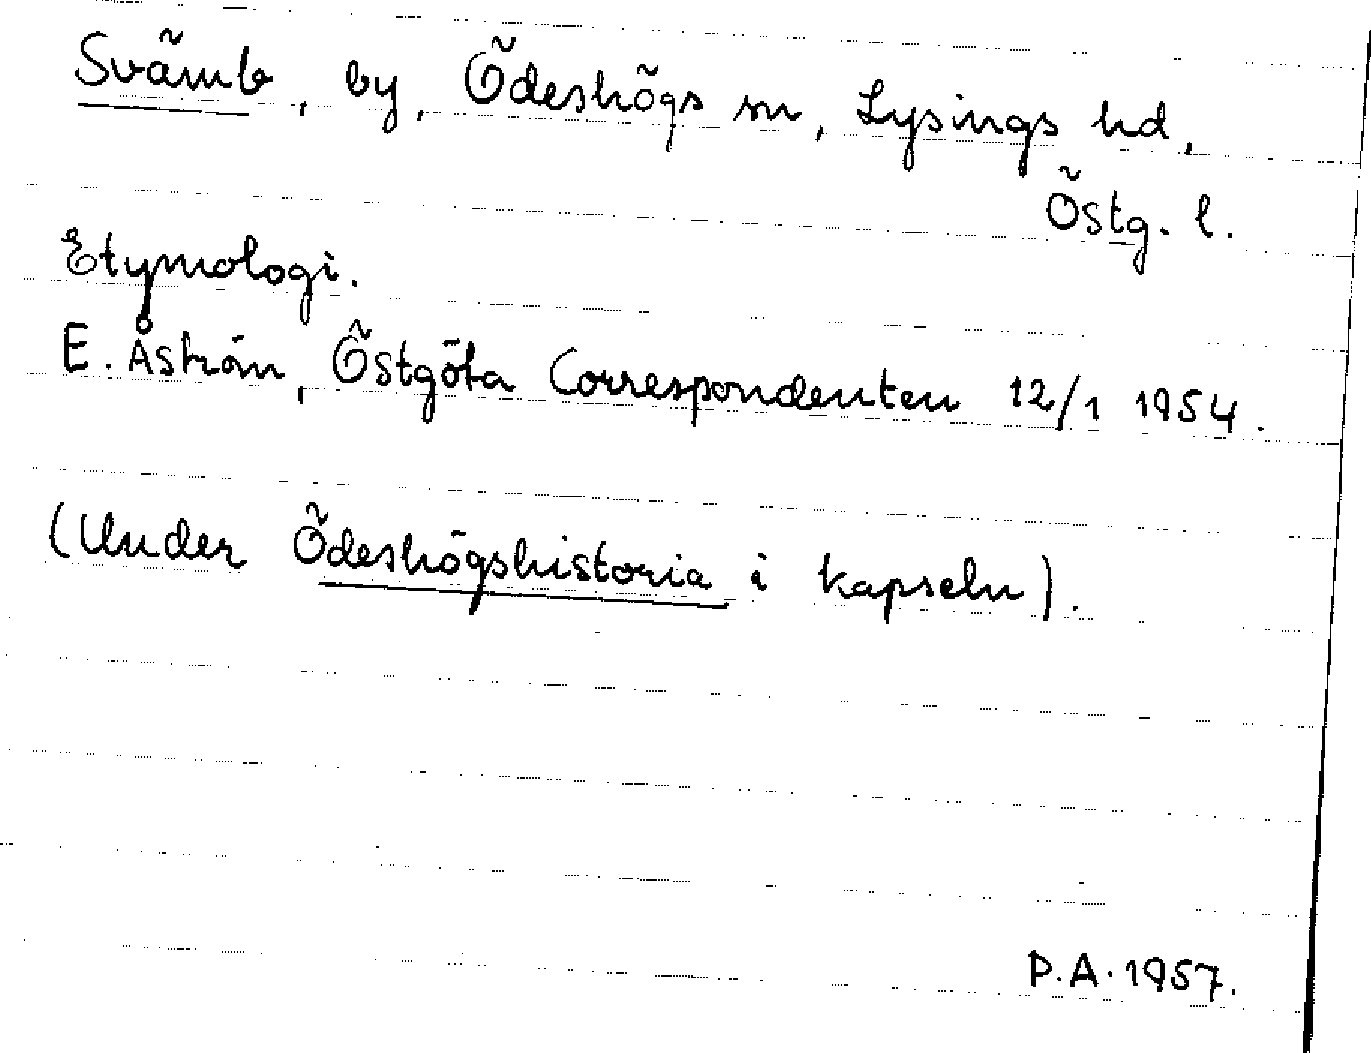 Svämb, by, Ödeshögs sn, Lysings hd,
Östg. l.
Etymologi.
E. Åstrån, Östgöta Correspondenten 12/1 1954.
(Under Ödeshögshistoria i kapseln).
P.A. 1957.